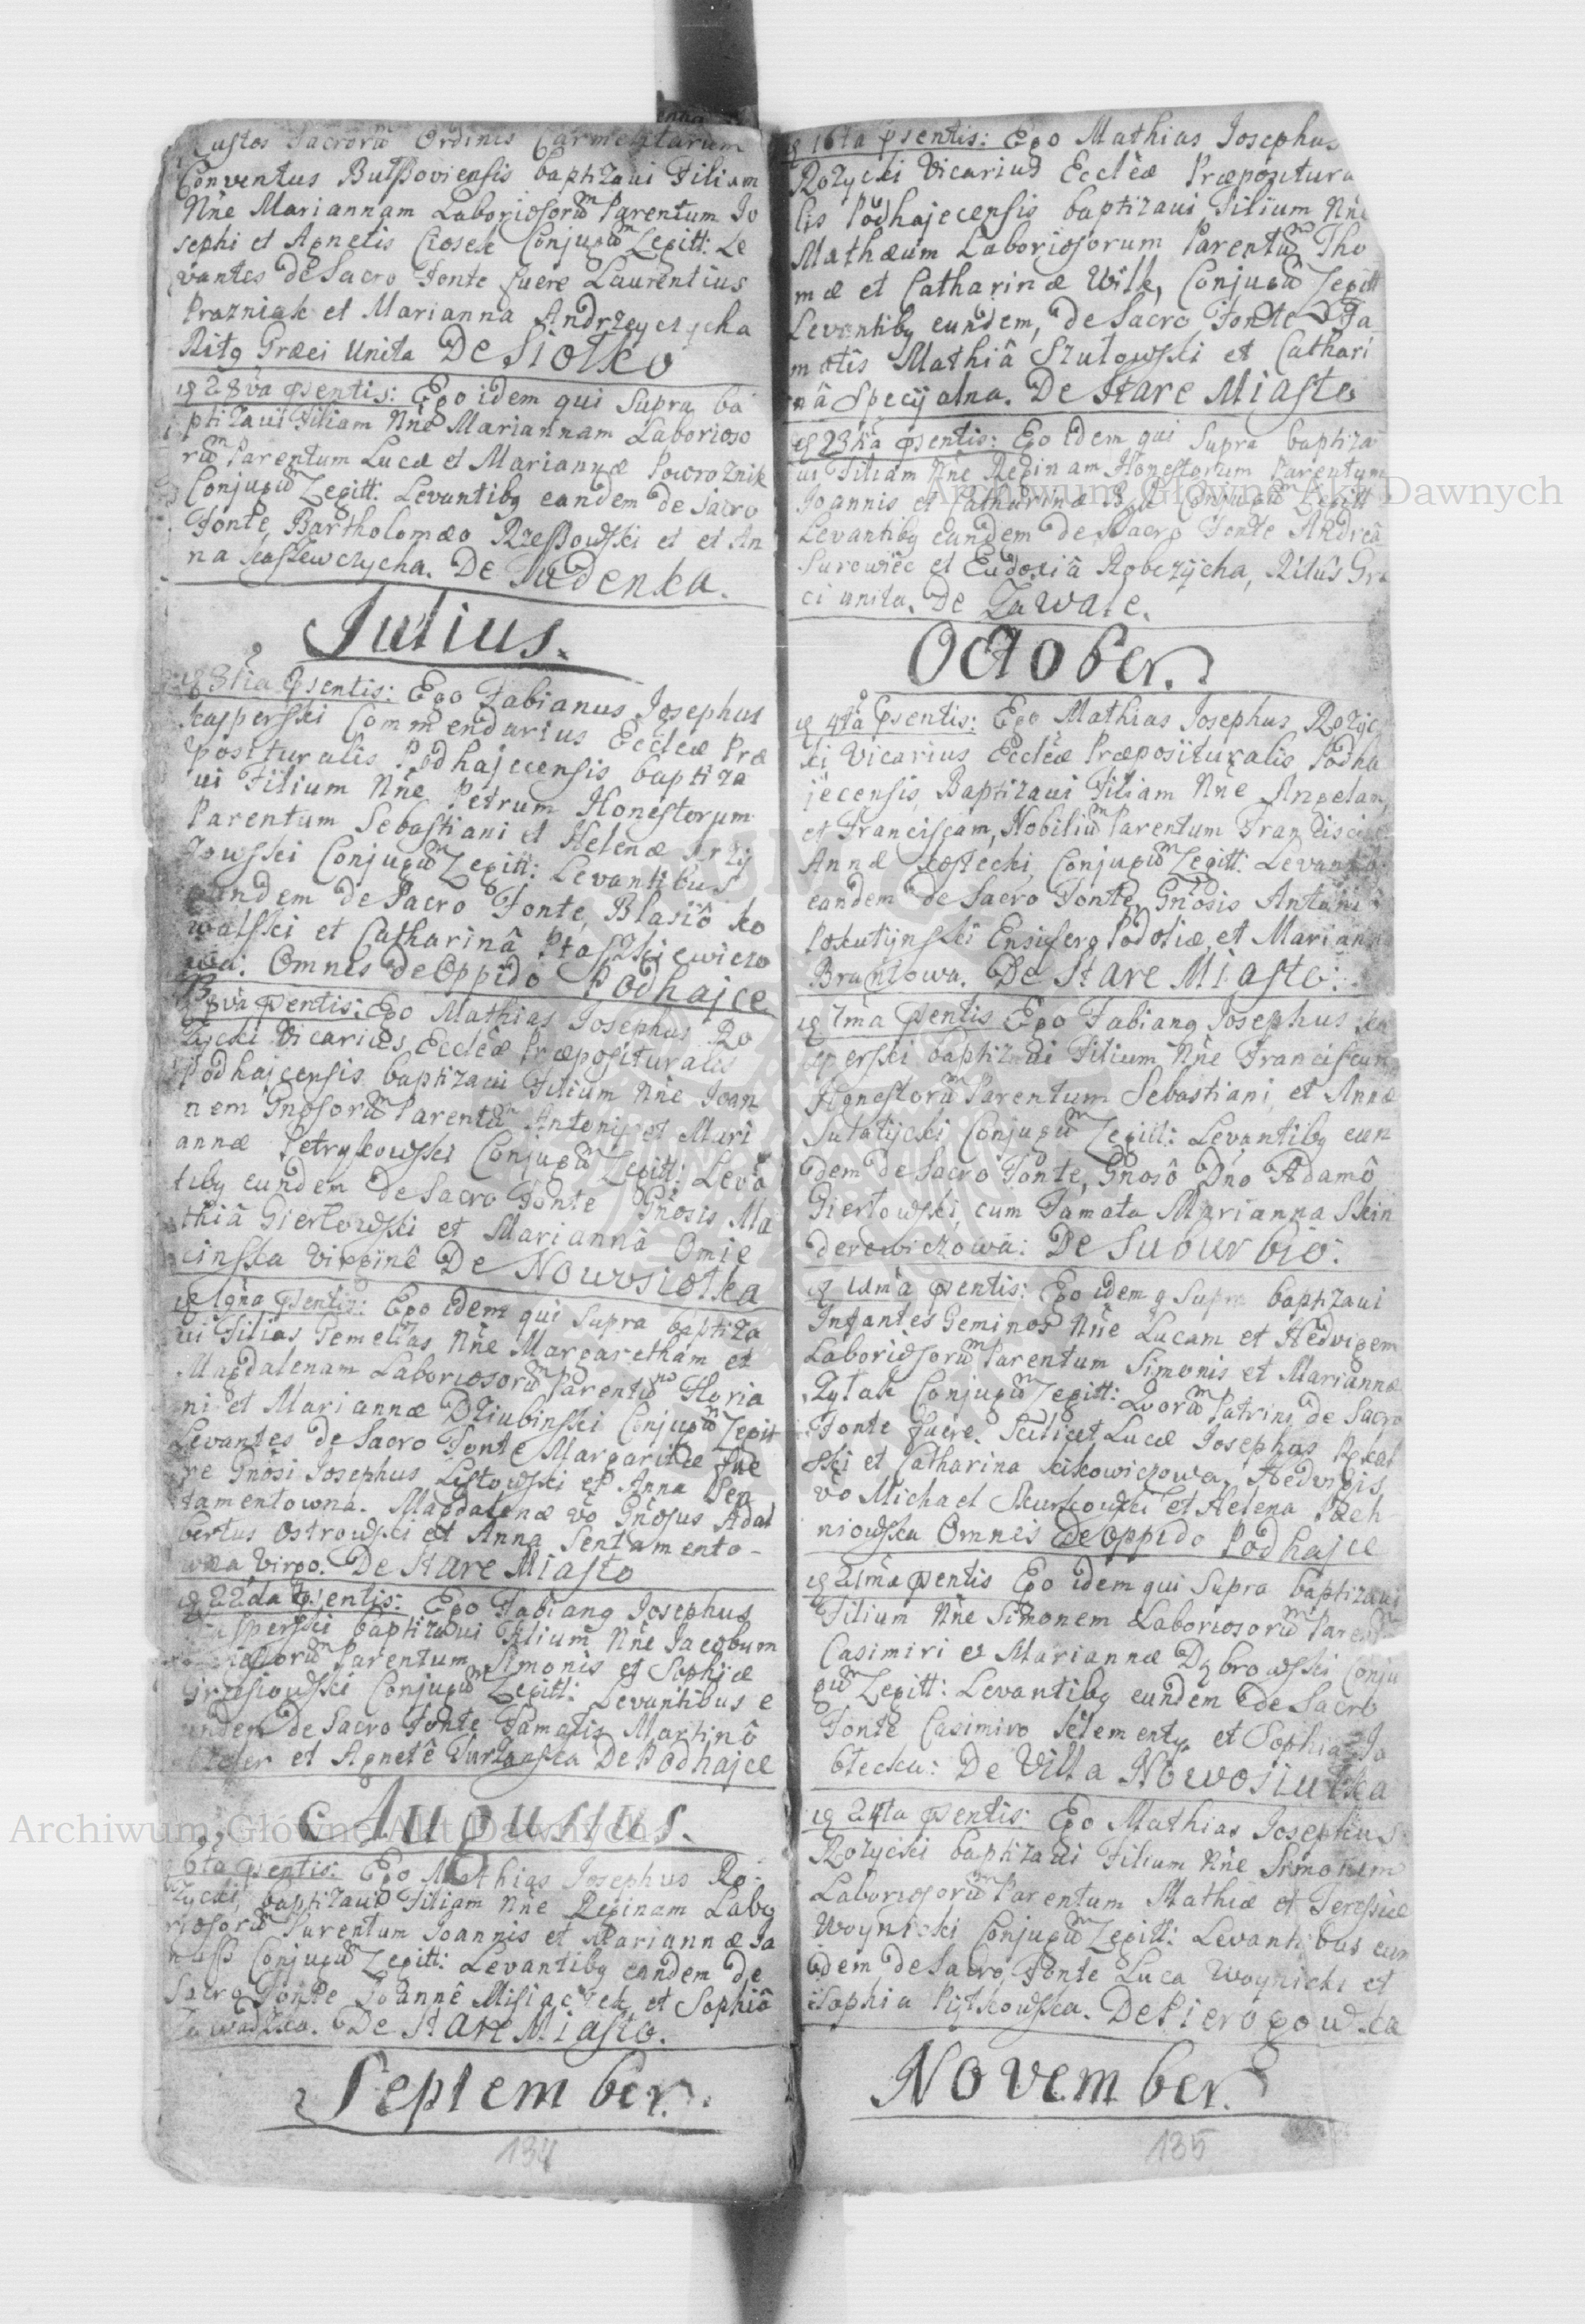 Custos Sacrorũ Ordinis Carmelitarum
Conventus Bulßoviensis baptizavi Filiam
Nñe Mariannam Laboriosorũ Parentum Jo
sephi et Agnetis Ciosek Conjugũ Legitt: Le
vantes de Sacro Fonte fuere Laurentius
Prazniak et Marianna Andrzeyczycha
Ritq Græci Unita De Siołko
28va psentis: Ego idem qui Supra ba
ptizaui Filiam Nñe Mariannam Laborioso
rũ Parentum Lucæ et Mariannæ Powroznik
Conjugũ Legitt: Levantibq eandem de Sacro
Fonte, Bartholomæo Rzeßowski et et An
na Kaszewczycha. De Zudenka.
Julius.
3tia psentis: Ego Fabianus Josephus
Kasperski Commendarius Eccleæ Præ
posituralis Podhajecensis baptiza
ui Filium Nñe Petrum Honestorum
Parentum Sebastiani et Helenæ
Conjugũ Legitt: Levantibus
eundem de Sacro Fonte, Blasiô Ko
walski et Catharinâ Ptaszkiewiczo
wa: Omnes de Oppido Podhajce
8va psentis: Ego Mathias Josephus Ro
życki Vicarius Eccleæ Præposituralis
Podhajcensis baptizaui Filium Nñe Joan
nem Gnosorũ Parentũ Antonii et Mari
annæ Petrykowski Conjugũ Legitt: Levã
tibq eundem de Sacro Fonte Gnosis Ma
thiâ Giertowski et Mariannâ Omie
cinska Virginê De Nowosiołka
19na psentis: Ego idem qui Supra baptiza
ui Filias Gemellas Nñe Margaretham et
Magdalenam Laboriosorũ Parentũ Floria
ni et Mariannæ Dziubinski Conjugũ Legitt
Levantes de Sacro Fonte Margaritæ fue
re Gnosi Josephus Listowski et Anna Sen
tamentowna. Magdalenæ vo Gnosus Adal
bertus Ostrowski et Anna Sentamento-
wna Virgo. De Stare Miasto
22da psentis: Ego Fabianq Josephus
Kasperski baptizaui Filium Nñe Jacobum
Parentum Simonis et Sophiæ
Grzesiowski Conjugũ Legitt: Levantibus e
undem de Sacro Fonte Famatis Martinô
et Agnetê Turzanska De Podhajce
Augustus.
6ta psentis: Ego Mathias Josephus Ro-
życki, baptizaui Filiam Nñe Reginam Labo
riosorũ Parentum Joannis et Mariannæ Ja
nuß Conjugũ Legitt: Levantibq eandem de
Sacro Fonte Joannê Misiaczek et Sophiâ
Zawadzka. De Stare Miasto.
September.
134
16ta psentis: Ego Mathias Josephus
Rożycki Vicarius Eccleæ Præpositura
lis Podhajecensis baptizaui Filium Nñe
Mathæum Laboriosorum Parentũ Tho
mæ et Catharinæ Wilk, Conjugũ Legitt
Levantibq eundem, de Sacro Fonte Fa
matis Mathiâ Szulowski et Cathari
nâ Specyalna. De Stare Miasto
23tia psentis: Ego idem qui Supra baptiza
ui Filiam Nñe Reginam Honestorum Parentum
Joannis et Catharinæ Conjugũ Legitt
Levantibq eandem de Sacro Fonte Andreâ
Surowiec et Eudoxiâ Robczycha, Ritûs Græ
ci unita. De Zawałe.
October.
4ta psentis: Ego Mathias Josephus Rożyc
ki Vicarius Eccleæ Præposituralis Podha
jecensis Baptizaui Filiam Nñe Angelam
et Franciscam, Nobiliũ Parentum Francisci
Annæ Kostecki, Conjugũ Legitt: Levantib
eandem de Sacro Fonte, Gnosis Antoni
Poskutynski Ensifero Podoliæ, et Mariann
Brantowa. De Stare Miasto:
7ma psentis Ego Fabianq Josephus Ka
sperski baptizaui Filium Nñe Franciscum
Honestorũ Parentum Sebastiani et Annæ
Sułatycki Conjugũ Legitt: Levantibq eun
dem de Sacro Fonte, Gnosô Dño Adamô
Giertowski, cum Famata Marianna Skin
derowiczowâ: De Suburbio:
psentis: Ego idem q Supra baptizaui
Infantes Geminos Nñe Lucam et Hedvigem
Laboriosorũ Parentum Simonis et Mariannæ
Rytak Conjugũ Legitt: Quorũ Patrini de Sacro
Fonte fuere. Scilicet Lucæ Josephus
ski et Catharina Kikowiczowa, Hedvigis
vo Michael Skurkowski et Helena
niowska Omnes de Oppido Podhajce
21ma psentis Ego idem qui Supra baptizaui
Filium Nñe Simonem Laboriosorũ Parent
Casimiri et Mariannæ Dąbrowski Conju
gũ Legitt: Levantibq eundem de Sacro
Fonte Casimiro Klementy et Sophia Ja
błecka: De Villa Nowosiułka
24ta psentis: Ego Mathias Josephus
Rożycki baptizaui Filium Nñe Simonem
Laboriosorũ Parentum Mathiæ et Teressiæ
Woynicki Conjugũ Legitt: Levantibus eun
dem de Sacro Fonte Luca Woynicki et
Sophia Pyłkowska. De Pierogowka
November.
135
Archiwum Główne Akt Dawnych
Archiwum Główne Akt Dawnych